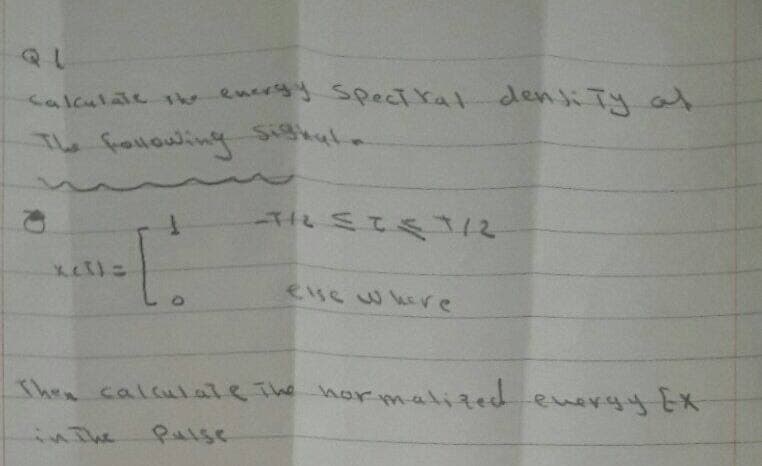 Q1
Calculate the energy Spectral density of
The following Signal.
1 -T/2 ≤ t ≤ T/2
x(t) =
0 else where
Then calculate The normalized energy Ex
in The Pulse